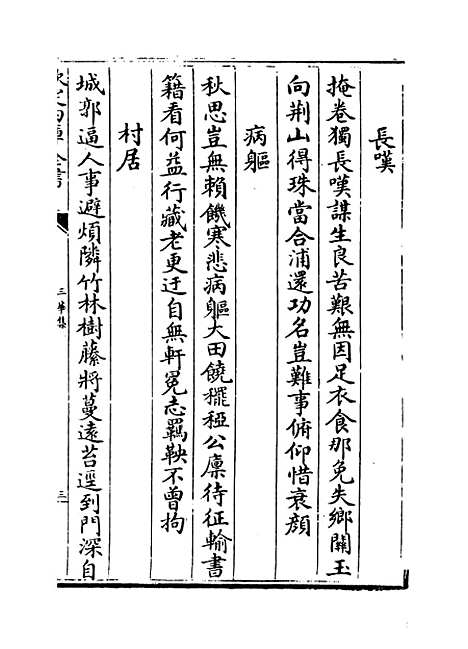 長嘆
掩卷獨長嘆謀生良苦艱無因足衣食那免失鄉關玉
向荆山得珠當合浦還功名豈難事俯仰惜衰顔
病軀
秋思豈無賴饑寒悲病軀大田饒䆉稏公廩待征輸書
籍看何益行藏老更迂自無軒冕志羈鞅不曾拘
村居
城郭逼人事避煩隣竹林樹藤將蔓遠苔逕到門深自
欽定四庫全書
三華集
三